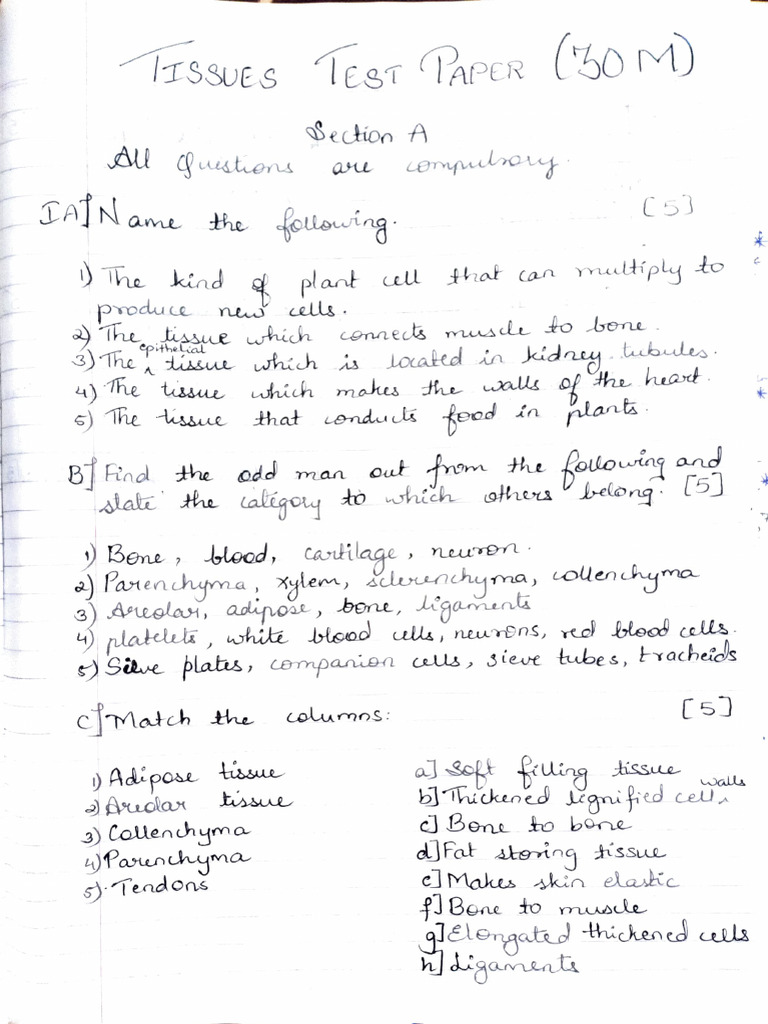 TISSUES TEST PAPER (30M)
Section A
All Questions are compulsory.
IA] Name the following. [5]
1) The kind of plant cell that can multiply to
produce new cells.
2) The tissue which connects muscle to bone.
3) The epithelial tissue which is located in kidney tubules.
4) The tissue which makes the walls of the heart.
5) The tissue that conducts food in plants.
B] Find the odd man out from the following and
state the category to which others belong. [5]
1) Bone, blood, cartilage, neuron.
2) Parenchyma, xylem, sclerenchyma, collenchyma
3) Areolar, adipose, bone, ligaments
4) platelets, white blood cells, neurons, red blood cells.
5) Sieve plates, companion cells, sieve tubes, tracheids
C] Match the columns: [5]
1) Adipose tissue a] Soft filling tissue
2) Areolar tissue b] Thickened lignified cell walls
3) Collenchyma c] Bone to bone
4) Parenchyma d] Fat storing tissue
5) Tendons e] Makes skin elastic
f] Bone to muscle
g] Elongated thickened cells
h] Ligaments